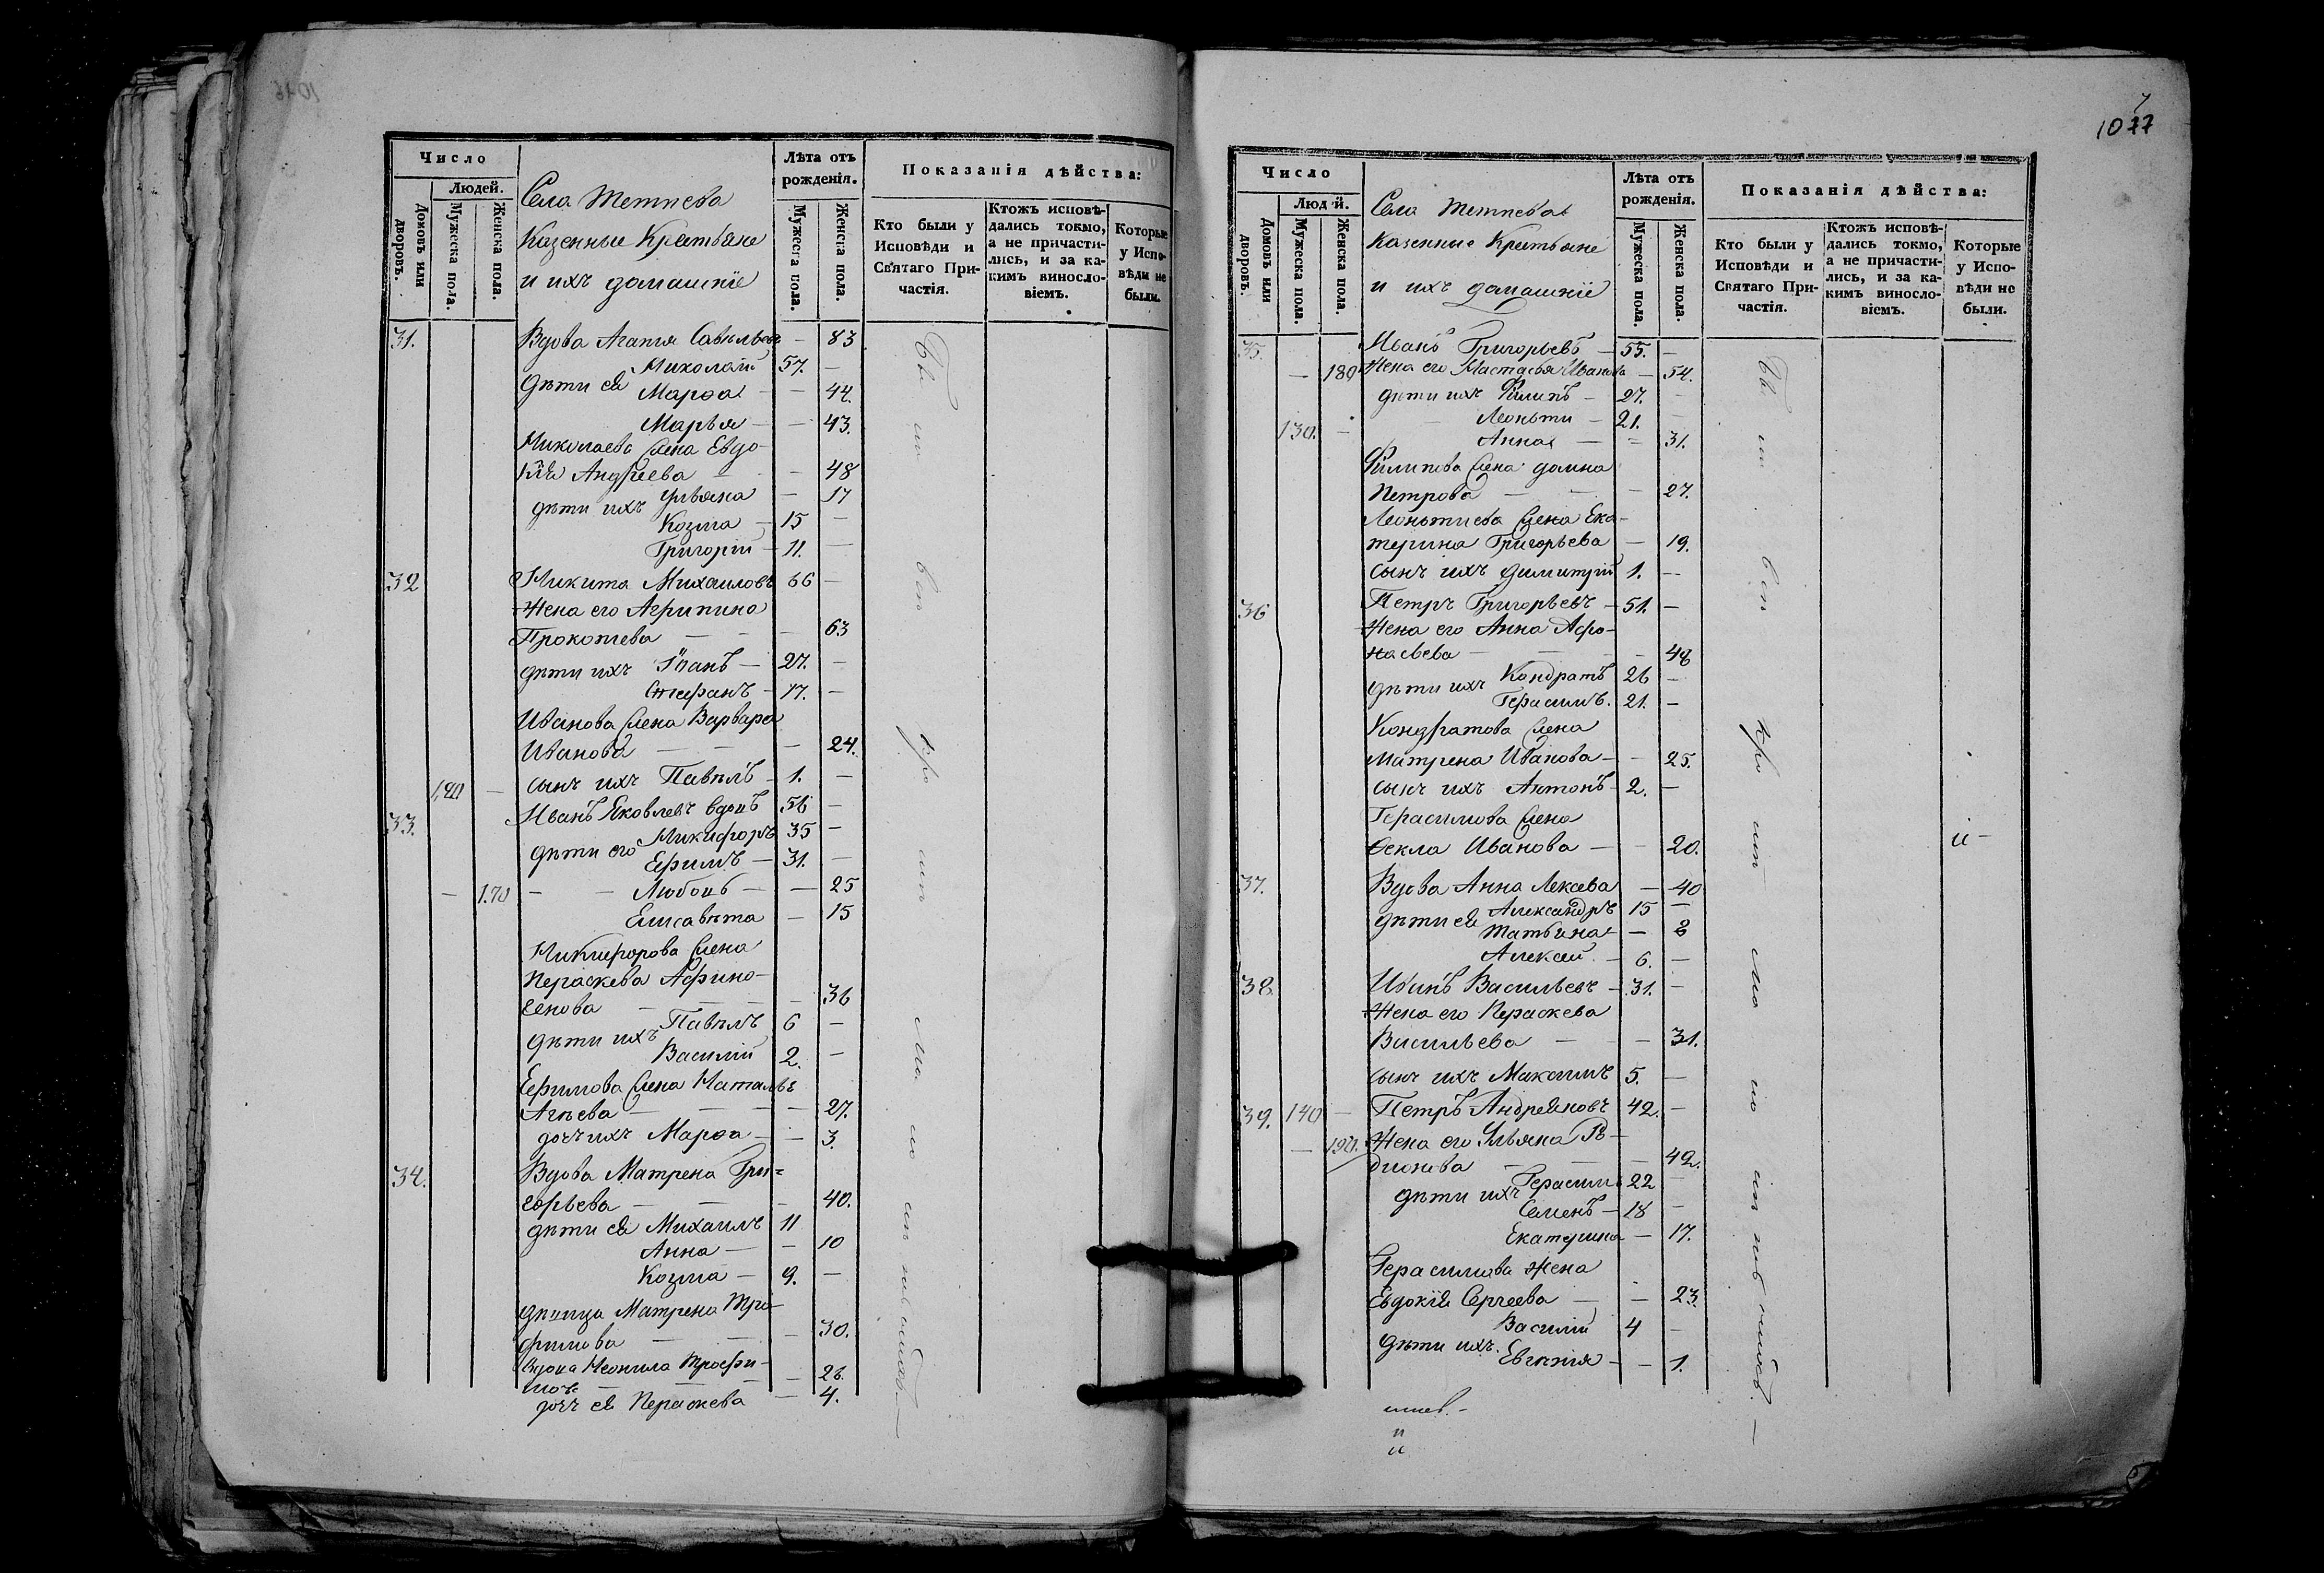 Число
Людей.
Домовъ или дворовъ.
Мужеска пола.
Женска пола.
Села Тетнева
Казенные Крестьяне
и ихъ домашнїе
Лѣта отъ рожденія.
Мужеска пола.
Женска пола.
Показанія дѣйства:
Кто были у Исповѣди и Святаго Причастія.
Ктожъ исповѣдались токмо, а не причастились, и за какимъ винословіемъ.
Которые у Исповѣди не были.
31. Вдова Агапия Савельева — 83
Николай 57. —
дѣти ея Марѳа — 44.
Марья — — 43.
Николаева жена Евдо-
кїя Андреева — — 48
Ульяна — 17
дѣти ихъ
Козма — 15 —
Григорій — 11. —
32 Никита Михаиловъ 66 —
Жена его Агрипина
Прокопиева — — — 63
дѣти ихъ Иванъ — 27. —
Стефанъ — 17. —
Иванова жена Варвара
Иванова — — — 24.
сынъ ихъ Павелъ — 1. —
120 —
33. Иванъ Яковлевъ вдовъ 56 —
Никифоръ 35 —
дѣти его
Ефимъ — 31. —
— 170 — — Любовь — — 25
Елисавета — 15
Никифорова жена
Пераскева Афино-
генова — — — — 36
Павелъ 6 —
дѣти ихъ
Василій 2. —
Ефимова жена Наталья
Агеева — — — — 27.
дочь ихъ Марѳа — — 3.
34. Вдова Матрена Гри=
горьева — — — 40.
дѣти ея Михаилъ 11
Анна — — 10
Козма — 9. —
дѣвица Матрена Тро-
фимова — — — 30.
Вдова Неонила Трофи-
мова — — — 26.
дочь ея Пераскева — 4.
7
1077
Число
Людей.
Домовъ или дворовъ.
Мужеска пола.
Женска пола.
Села Тетнева
Казенные Крестьяне
и ихъ домашнїе
Лѣта отъ рожденія.
Мужеска пола.
Женска пола.
Показанія дѣйства:
Кто были у Исповѣди и Святаго Причастія.
Ктожъ исповѣдались токмо, а не причастились, и за какимъ винословіемъ.
Которые у Исповѣди не были.
35. Иванъ Григорьевъ — 55. —
— 180 Жена его Настасья Иванова — 54.
дѣти ихъ Филипъ — 27. —
— Леонтий — 21. —
130. — Анна — — 31.
Филипова жена домна
Петрова — — — 27.
Леонтиева жена Ека-
терина Григорьева — 19.
сынъ ихъ димитрій 1. —
36 Петръ Григорьевъ — 51. —
Жена его Анна Афо-
насьева — — — 48
Кондратъ 26 —
дѣти ихъ
Герасимъ. 21. —
Кондратова жена
Матрена Иванова — — 25.
сынъ ихъ Антонъ — 2. —
Герасимова жена
Ѳекла Иванова — — 20.
37. Вдова Анна Алексеева — 40
Александръ 15 —
дѣти ея
Татьяна — — 8
Алексей — 6. —
38. Иванъ Васильевъ — 31. —
Жена его Пераскева
Васильева — — 31.
сынъ ихъ Максимъ 5. —
39. 140 — Петръ Андреяновъ 42. —
— 190. Жена его Ульяна Ро-
дионова — — — 42.
Герасимъ 22 —
дѣти ихъ
Семенъ — 18 —
Екатерина — 17.
Герасимова жена
Евдокїя Сергеева — — 23.
Василій 4 —
дѣти ихъ.
Евгения — — 1.